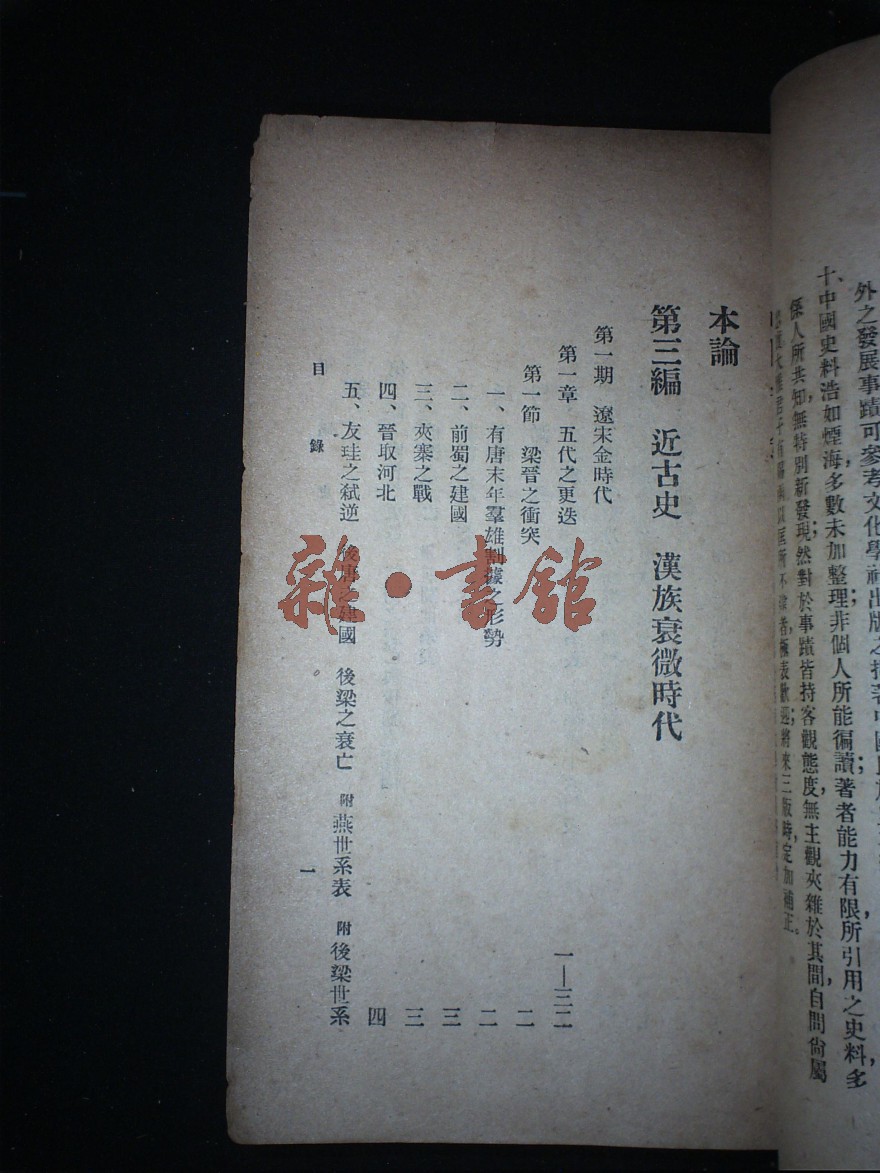 外之發展事蹟可參考文化學社出版之拙著中國民族
十、中國史料浩如煙海，多數未加整理；非個人所能徧讀；著者能力有限，所引用之史料，多
係人所共知，無特別新發現；然對於事蹟皆持客觀態度，無主觀夾雜於其間，自問尚屬
者，極表歡迎；將來三版時，定加補正。
本論
第三編 近古史 漢族衰微時代
第一期 遼末金時代
第一章 五代之更迭 一—三二
第一節 梁晉之衝突 二
一、有唐末年羣雄割據之形勢 二
二、前蜀之建國 三
三、夾寨之戰 三
四、晉取河北 四
五、友珪之弒逆 後唐之建國 後梁之衰亡 附燕世系表 附後梁世系
目錄 一
雜·書館